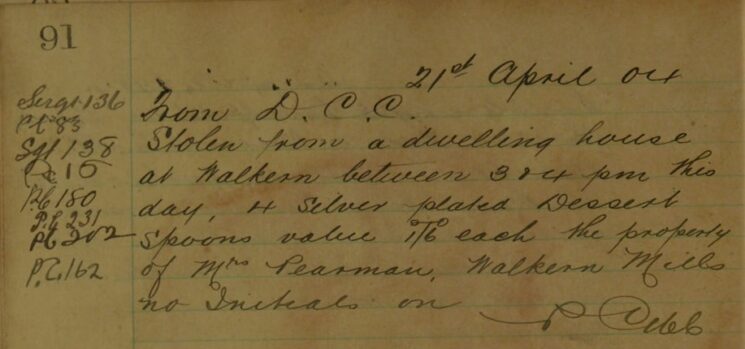 91
21st April 04
Sergt 136
From D. C. C.
Pc 83
Stolen from a dwelling house
Sgt 138
at Walkern between 3 & 4 pm this
Pc 15
day, 4 Silver plated Dessert
Pc 180
P.C 231
spoons value 1/6 each the property
Pc 202
of Mrs Pearman, Walkern Mills
P.C. 162
no Initials on